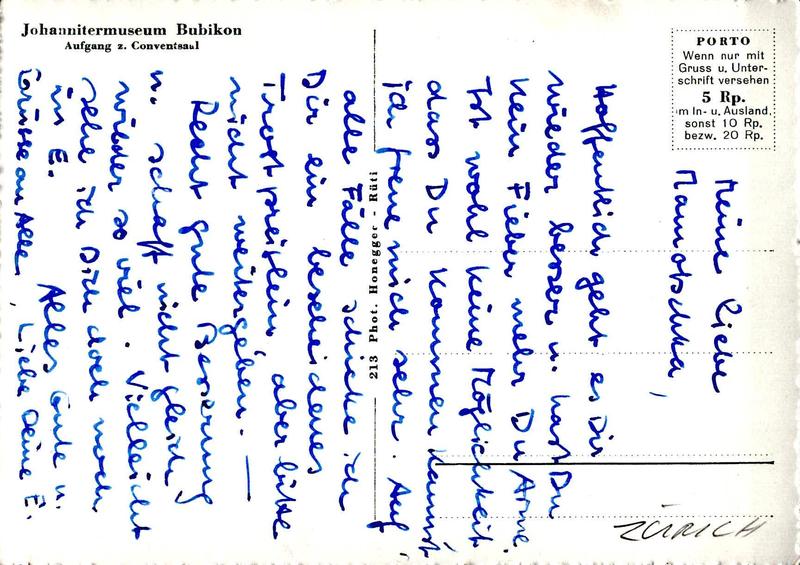 Johannitermuseum Bubikon
Aufgang z. Conventsaal
PORTO
Wenn nur mit
Gruss u. Unter-
schrift versehen
5 Rp.
im In- u. Ausland,
sonst 10 Rp.
bezw. 20 Rp.
213 Phot. Honegger - Rüti
Meine liebe
Mamotschka,
Hoffentlich geht es Dir
wieder besser u. hast Du
kein Fieber mehr Du Arme.
Ist wohl keine Möglichkeit
dass Du kommen kannst
ich freue mich sehr. Auf
alle Fälle schicke ich
Dir ein bescheidenes
Trostpreislein, aber bitte
nicht weitergeben. —
Recht gute Besserung
u. schaff nicht gleich
wieder so viel. Vielleicht
sehe ich Dich doch noch
in E.
Alles Gute u.
Grüsse an Alle, Liebe Deine E.
ZÜRICH